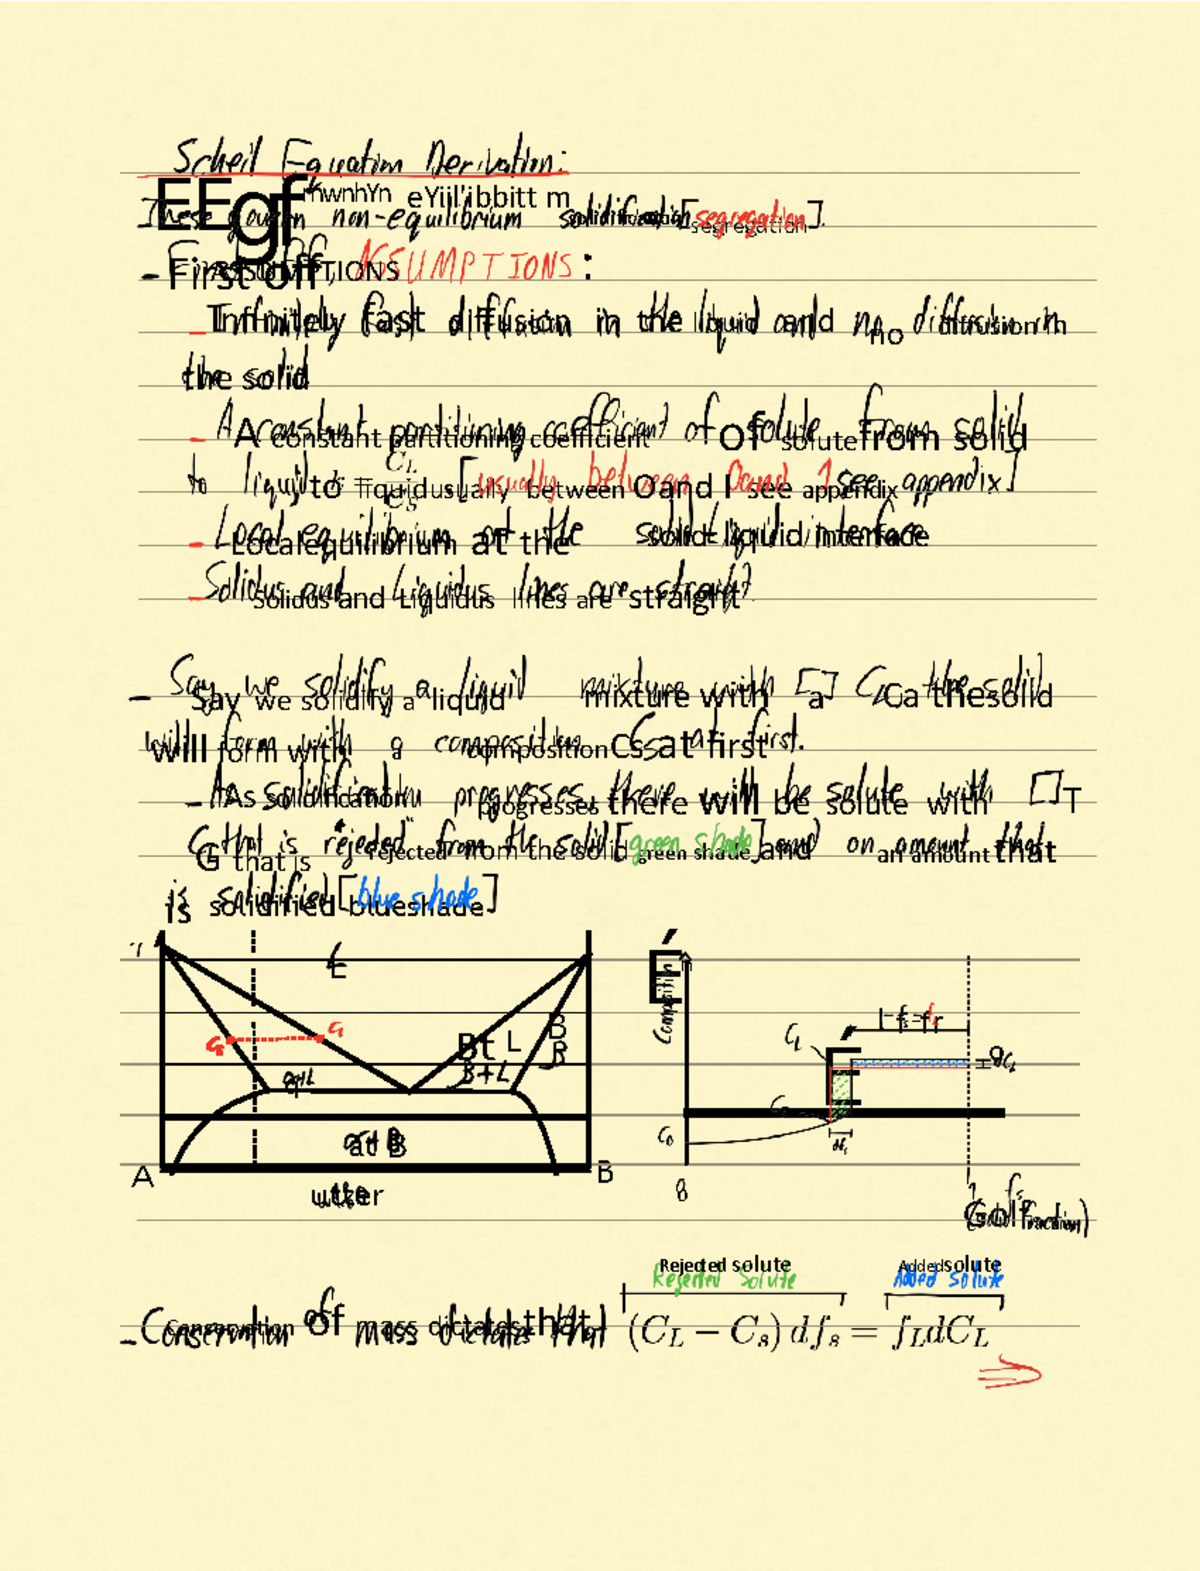 Scheil Equation Derivation:
These govern non-equilibrium solidification [segregation].
- First off, ASSUMPTIONS:
- Infinitely fast diffusion in the liquid and no diffusion in
the solid
- A constant partitioning coefficient of solute from solid
to liquid = C_L/C_S [usually between 0 and 1 see appendix]
- Local equilibrium at the solid-liquid interface
- Solidus and Liquidus lines are straight.
- Say we solidify a liquid mixture with [] C_L the solid
will form with a composition C_S at first.
- As solidification progresses, there will be solute with []
C_L that is "rejected" from the solid [green shade] and an amount that
is solidified [blue shade]
L
B+L
B
α+L
α+B
A
B
Composition
C_L
1-f_s=f_L
dC_L
C_s
C_0
df_s
0
1
f_s
(Solid Fraction)
Rejected Solute
Added Solute
- Conservation of mass dictates that (C_L − C_s) df_s = f_L dC_L